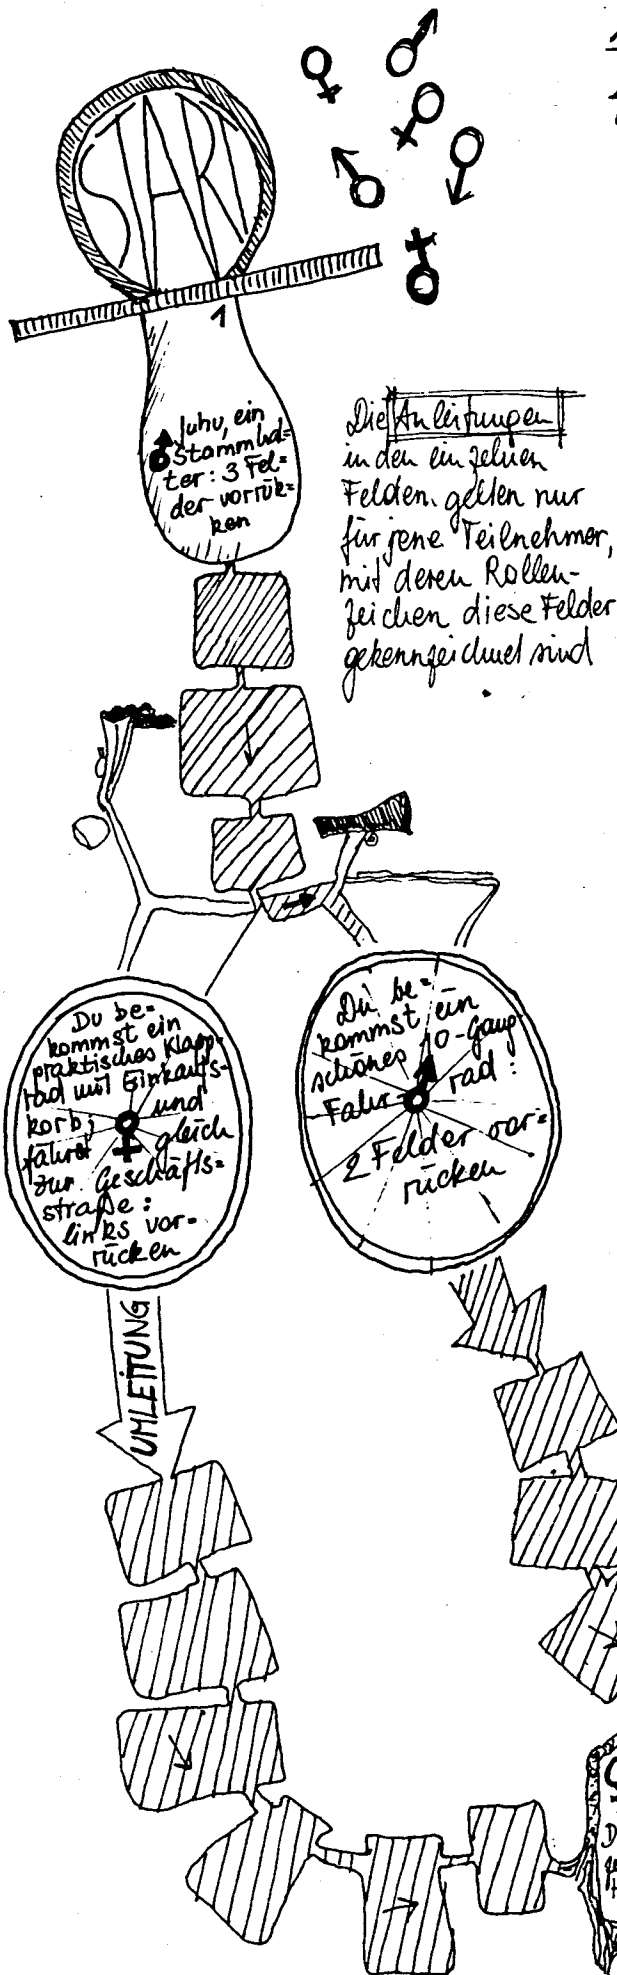 START
1
Juhu, ein
Stammhal=
ter: 3 Fel=
der vorrük=
ken
Die Anleitungen
in den einzelnen
Feldern gelten nur
für jene Teilnehmer,
mit deren Rollen-
zeichen diese Felder
gekennzeichnet sind
Du be=
kommst ein
praktisches Klapp-
rad mit Einkaufs-
korb, und
fährst gleich
zur Geschäfts=
straße:
links vor=
rücken
Du be=
kommst ein
schönes 10-Gang-
Fahrrad:
2 Felder vor=
rücken
UMLEITUNG